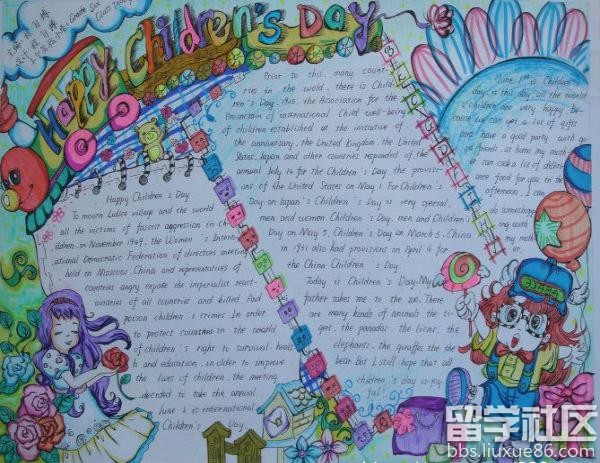 Happy Children's Day
Happy Children's Day
To mourn Lidice village and the world
all the victims of fascist aggression in ch
ildren, on November 1949, the Women's Intern
ational Democratic Federation of directors meeting
held in Moscow, China and representatives of
countries angry expose the imperialist react
ionaries of all countries and killed And
poison children's crimes. In order
to protect countries in the world
of children's right to survival, heals
h and education, in older to improve
the lives of children, the meeting
decided to take the annual
June 1 is international
Children's Day.
Prior to this, many count-
ries in the wold, there is Child
ren's Day. 1925, the Association for the
Promotion of international Child well-being
of children established at the initiative of
the anniversary, the United Kingdom, the United
States, Japan and other countries responded of the
annual July 14 for the Children's Day, the provisi
ons of the United States on May 1 For Children's
Day on Japan's Children's Day is very special,
men and women Children's Day, men and Children's
Day on May 5, Children's Day on March 3. China
in 1931 also had provisions on April 4 for
the China Children's Day.
Today is Children's Day. My
father takes me to the zoo. There
are many kinds of animals, the ti-
ger, the pandas, the lions, the
elephants, the giraffes, the
bear. But I still hope that all
children's day is jo
ful!
June 1st is Children's
day, in this day, all the world
children are very happy. Be
cause we can get a lot of gifts
and have a good party with go
od friends, at home my moth
er can cook a lot of delici
ence food for you, in the
afternoon, I can
do something
ong with
my moth
er.
留学社区
bbs.liuxue86.com